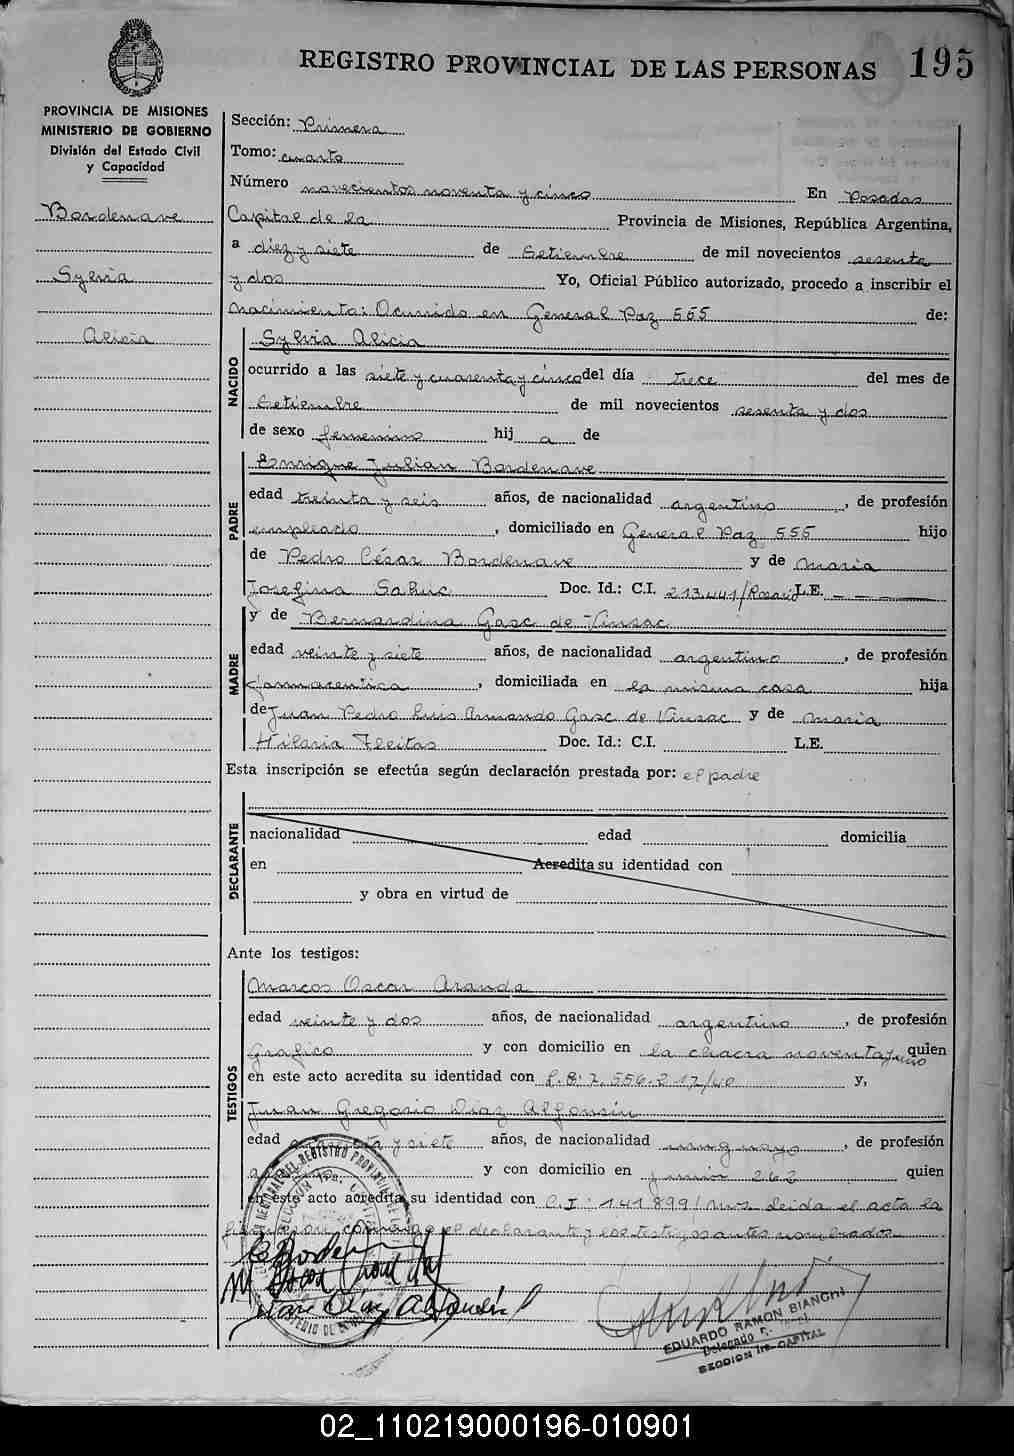 REGISTRO PROVINCIAL DE LAS PERSONAS 195
PROVINCIA DE MISIONES
MINISTERIO DE GOBIERNO
División del Estado Civil
y Capacidad
Bordenave
Sylvia
Alicia
Sección: Primera
Tomo: cuarto
Número novecientos noventa y cinco En Posadas
Capital de la Provincia de Misiones, República Argentina,
a diez y siete de Setiembre de mil novecientos sesenta
y dos Yo, Oficial Público autorizado, procedo a inscribir el
nacimiento: Ocurrido en General Paz 555 de:
NACIDO
Sylvia Alicia
ocurrido a las siete y cuarenta y cinco del día trece del mes de
Setiembre de mil novecientos sesenta y dos
de sexo femenino hij a de
PADRE
Enrique Julian Bordenave
edad treinta y seis años, de nacionalidad argentino, de profesión
empleado, domiciliado en General Paz 555 hijo
de Pedro César Bordenave y de Maria
Josefina Sahuc Doc. Id.: C.I. 213.441/Rosario L.E. - - -
MADRE
y de Bernardina Gasc de Vinsac
edad veinte y siete años, de nacionalidad argentino, de profesión
farmaceutica, domiciliada en la misma casa hija
de Juan Pedro Luis Armando Gasc de Vinsac y de Maria
Hilaria Fleitas Doc. Id.: C.I. L.E.
Esta inscripción se efectúa según declaración prestada por: el padre
DECLARANTE
nacionalidad edad domicilia
en Acredita su identidad con
y obra en virtud de
Ante los testigos:
TESTIGOS
Marcos Oscar Aranda
edad veinte y dos años, de nacionalidad argentino, de profesión
Grafico y con domicilio en la chacra noventa y uno quien
en este acto acredita su identidad con 7.556.217/40 y,
Juan Gregorio Diaz Alfonsin
edad y siete años, de nacionalidad uruguayo, de profesión
y con domicilio en Junin 262 quien
en este acto acredita su identidad con C.I: 141899/Mis. leida el acta la
firman conmigo el declarante y los testigos antes nombrados
EDUARDO RAMON BIANCHI
Delegado
SECCION 1ra. CAPITAL
02_110219000196-010901